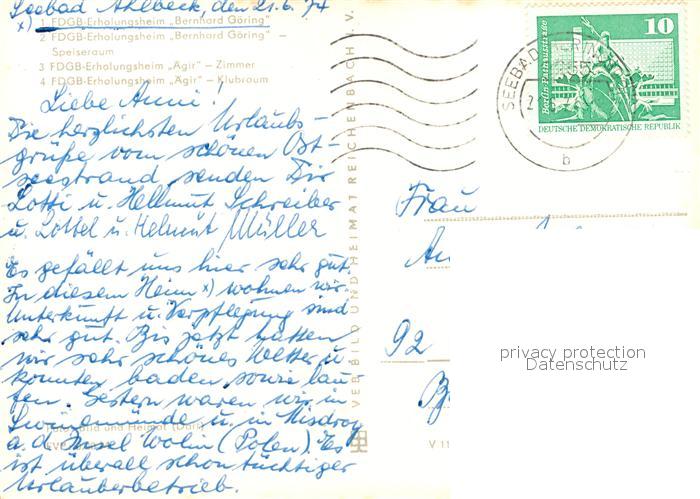 Seebad Ahlbeck, den 21.6.74
x) 1 FDGB-Erholungsheim „Bernhard Göring"
2 FDGB-Erholungsheim „Bernhard Göring" –
Speiseraum
3 FDGB-Erholungsheim „Ägir" – Zimmer
4 FDGB-Erholungsheim „Ägir" – Klubraum
Liebe Anni!
Die herzlichsten Urlaubs-
grüße vom schönen Ost-
seestrand senden Dir
Lotti u. Hellmut Schreiber
u. Lottel u. Helmut Müller
Es gefällt uns hier sehr gut.
In diesem Heim x) wohnen wir.
Unterkunft u. Verpflegung sind
sehr gut. Bis jetzt hatten
wir sehr schönes Wetter u.
konnten baden sowie lau-
fen. Gestern waren wir in
Swinemünde u. in Misdroy
a. d. Insel Wolin (Polen). Es
ist überall schon tüchtiger
Urlauberbetrieb.
Bild und Heimat
VEB BILD UND HEIMAT REICHENBACH i. V.
V 11
SEEBAD
b
10
Berlin, Rathausstraße
DEUTSCHE DEMOKRATISCHE REPUBLIK
Frau
92
privacy protection
Datenschutz